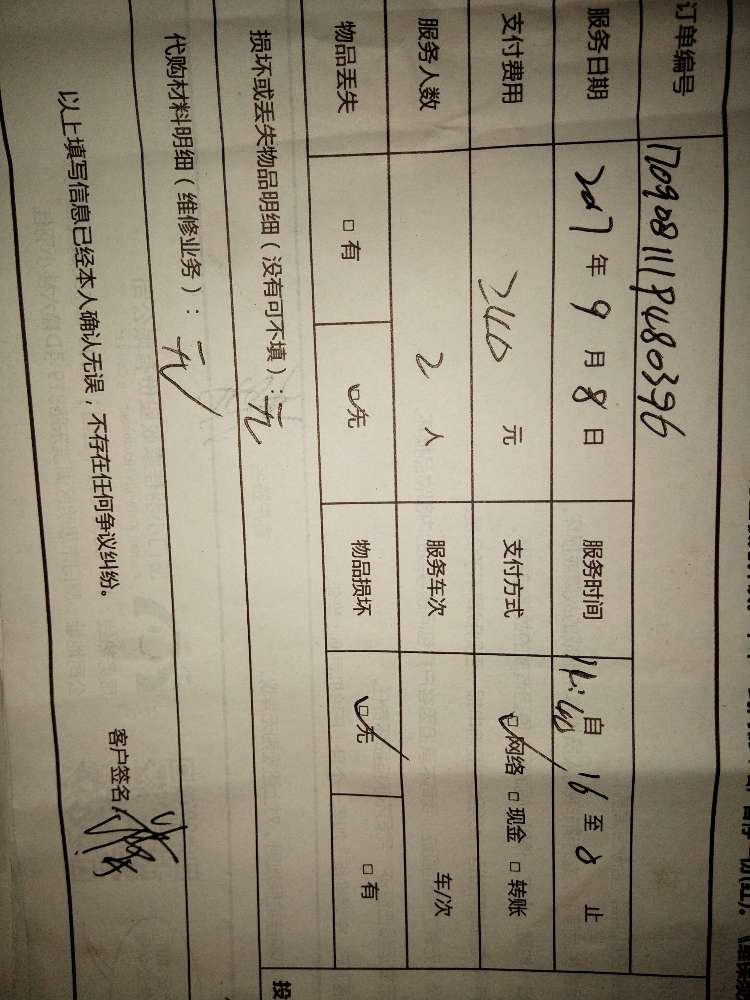 订单编号 1709081118480396
服务日期 2017年9月8日 服务时间 自 至 止
支付费用 240元 支付方式 ☑网络 □现金 □转账
服务人数 2人 服务车次 车/次
物品丢失 □有 ☑无 物品损坏 ☑无 □有
损坏或丢失物品明细（没有可不填）：无
代购材料明细（维修业务）：无
以上填写信息已经本人确认无误，不存在任何争议纠纷。
客户签名：
投